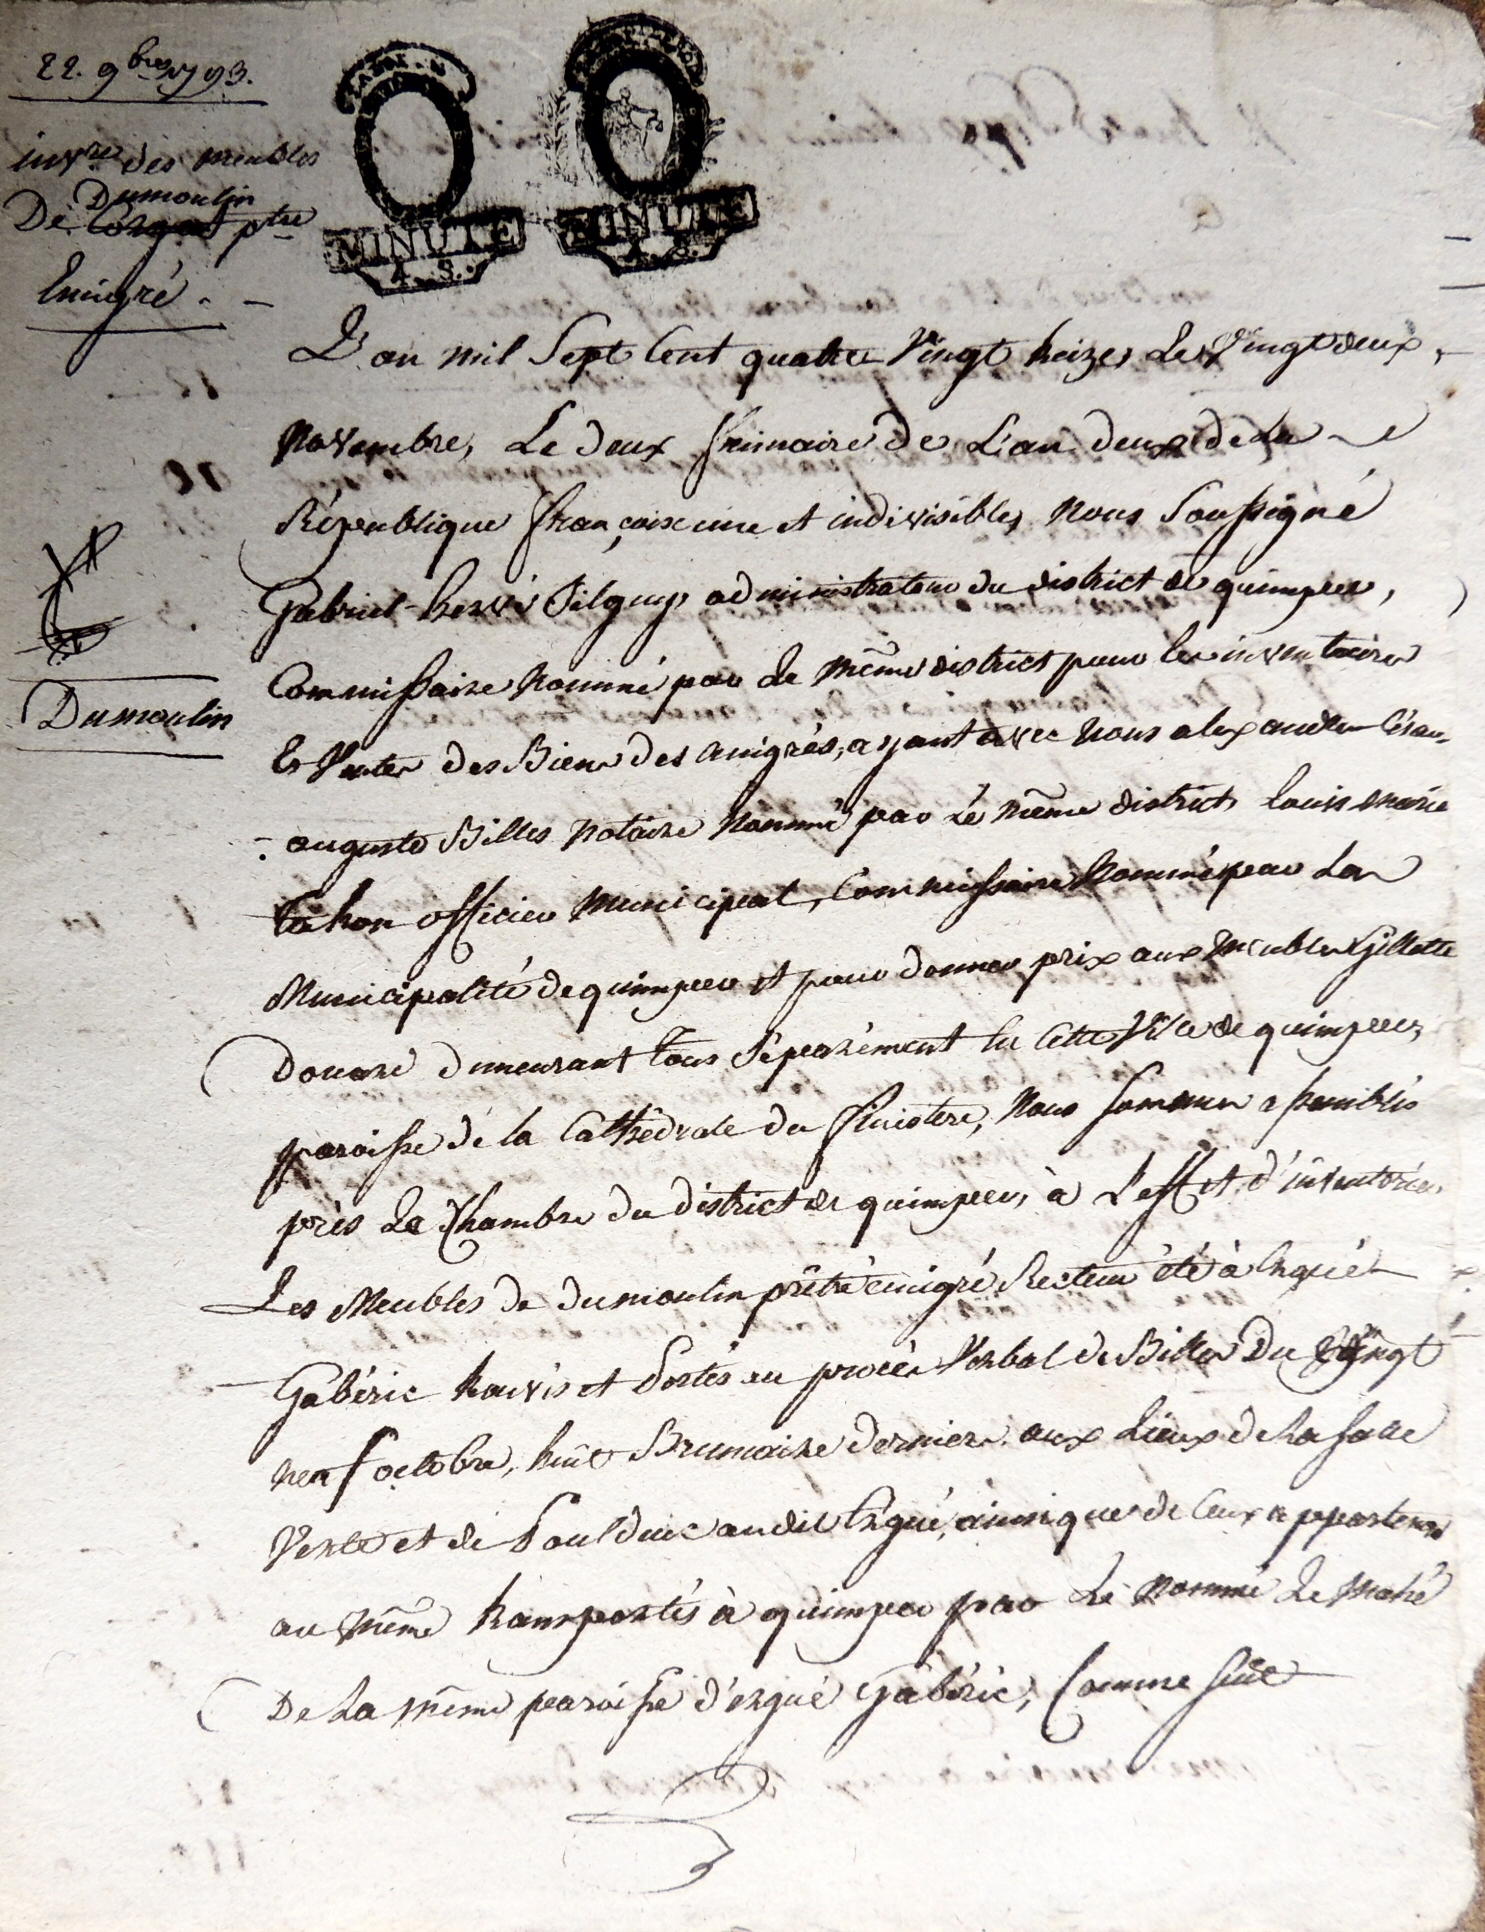 22. 9bre 1793.
invre des meubles
Dumoulin
De ptre
Emigré. -
MINUTE
4. S.
MINUTE
L'an mil Sept Cent quatre Vingt treize, Le Vingt deux,
Novembre, Le deux frimaire de L'an deux de La
République françoise une et indivisible, Nous Soussigné
Gabriel-hervé Silguy, administrateur du district de quimper,
Commissaire Nommé par Le même district pour les inventaires
Et Ventes des Biens des émigrés, ayant avec Nous alexandre César-
auguste Billes Notaire Nommé par Le même district, louis marie
officier Municipal, Commissaire Nommé par La
Municipalité de quimper et pour donner prix aux Meubles Gillette
Douaré demeurant tous Séparément En Cette Ville de quimper,
paroisse de la Cathédrale du finistere, Nous sommes assemblés
près La Chambre du district de quimper, à L'effet d'inventorier,
Les Meubles de dumoulin prêtre émigré Recteur été à Ergué-
Gabéric trouvés et Portés au procès Verbal de Billes Du Vingt
neuf octobre, huit Brumaire dernier aux Lieux de La salle
Verte et de Poulduic audit Ergué, ainsi que de Ceux appartenans
au même transportés à quimper par Le nommé Le Mahé
De La même paroisse d'ergué Gabéric, Comme suit
Dumoulin